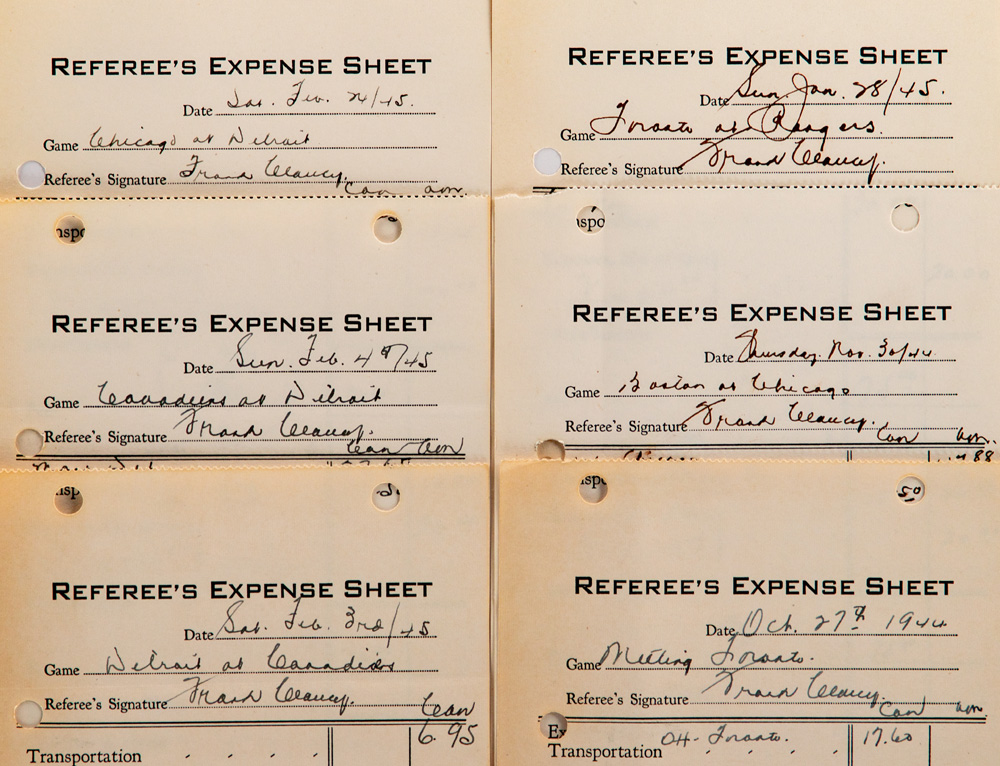 REFEREE'S EXPENSE SHEET
Date Sat. Feb. 24/45.
Game Chicago at Detroit
Referee's Signature Frank Clancy.
Can am.
REFEREE'S EXPENSE SHEET
Date Sun. Feb. 4th/45
Game Canadiens at Detroit
Referee's Signature Frank Clancy.
Can am
REFEREE'S EXPENSE SHEET
Date Sat. Feb. 3rd/45
Game Detroit at Canadiens
Referee's Signature Frank Clancy.
Can
6.95
Transportation
REFEREE'S EXPENSE SHEET
Date Sun. Jan. 28/45.
Game Toronto at Rangers.
Referee's Signature Frank Clancy.
REFEREE'S EXPENSE SHEET
Date Thursday. Nov. 30/44
Game Boston at Chicago
Referee's Signature Frank Clancy.
Can am.
88
REFEREE'S EXPENSE SHEET
Date Oct. 27th 1944
Game Meeting Toronto.
Referee's Signature Frank Clancy.
Can am.
Ex
Transportation Ott- Toronto. 17.60